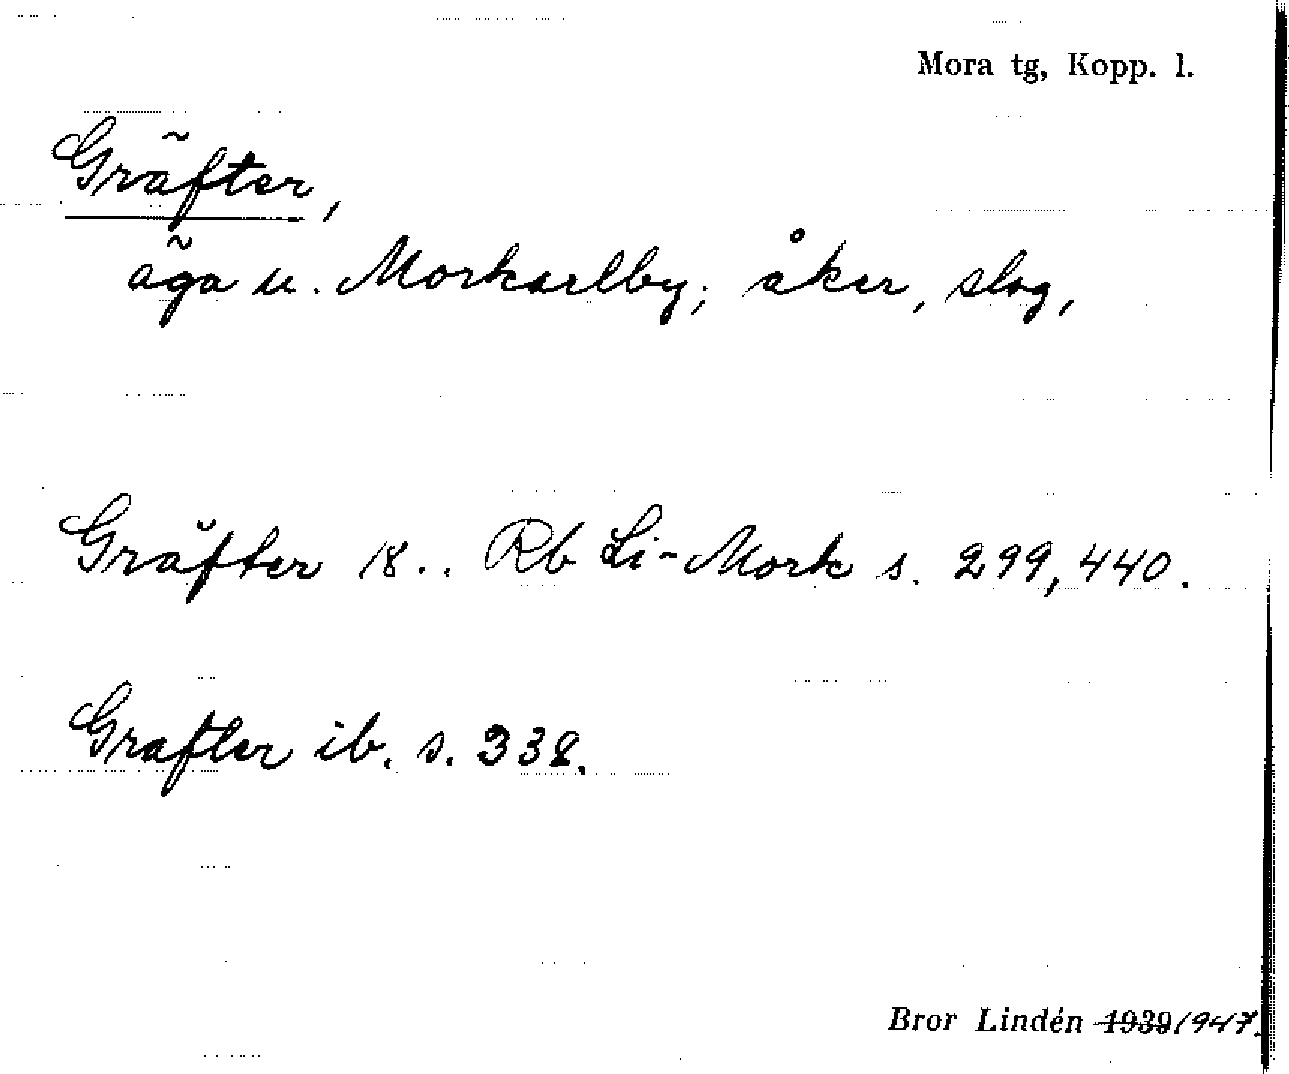 Mora tg, Kopp. l.
Gräfter,
äga u. Morkarlby; åker, slog,
Gräfter 18.. Rb Li-Mork s. 299, 440.
Grafter ib. s. 338.
Bror Lindén 1939 1947.